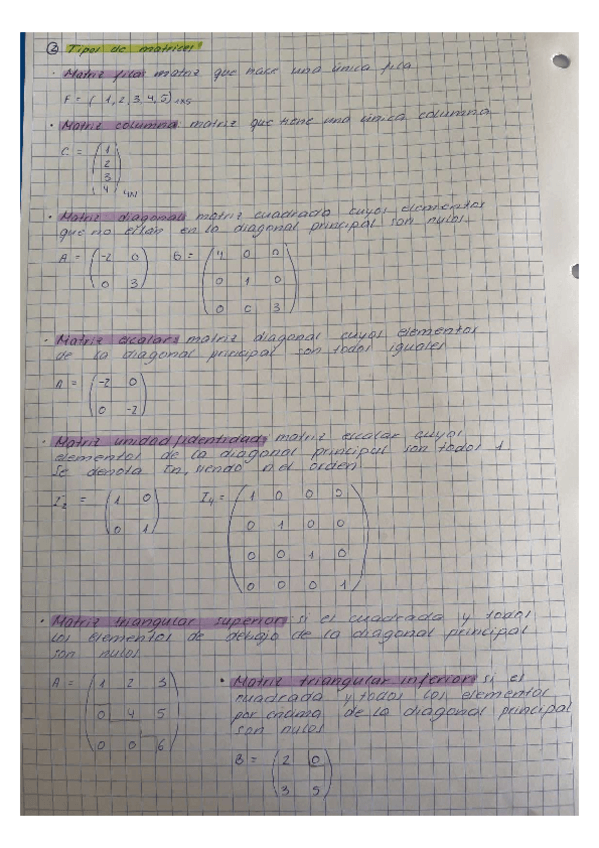 ② Tipos de matrices:
· Matriz fila: matriz que tiene una única fila
F = ( 1, 2, 3, 4, 5) 1x5
· Matriz columna: matriz que tiene una única columna
C = ( 1
2
3
4 )
· Matriz diagonal: matriz cuadrada cuyos elementos
que no están en la diagonal principal son nulos.
A = ( -2 0 B = ( 4 0 0
0 1 0
0 3 )
0 0 3 )
· Matriz escalar: matriz diagonal cuyos elementos
de la diagonal principal son todos iguales
A = ( -2 0
0 -2 )
· Matriz unidad/identidad: matriz escalar cuyos
elementos de la diagonal principal son todos 1
Se denota In, siendo n el orden
I2 = ( 1 0 I4 = ( 1 0 0 0
0 1 ) 0 1 0 0
0 0 1 0
0 0 0 1 )
· Matriz triangular superior: si es cuadrada y todos
los elementos de debajo de la diagonal principal
son nulos
A = ( 1 2 3
0 4 5
0 0 6 )
· Matriz triangular inferior: si es
cuadrada y todos los elementos
por encima de la diagonal principal
son nulos
B = ( 2 0
3 5 )